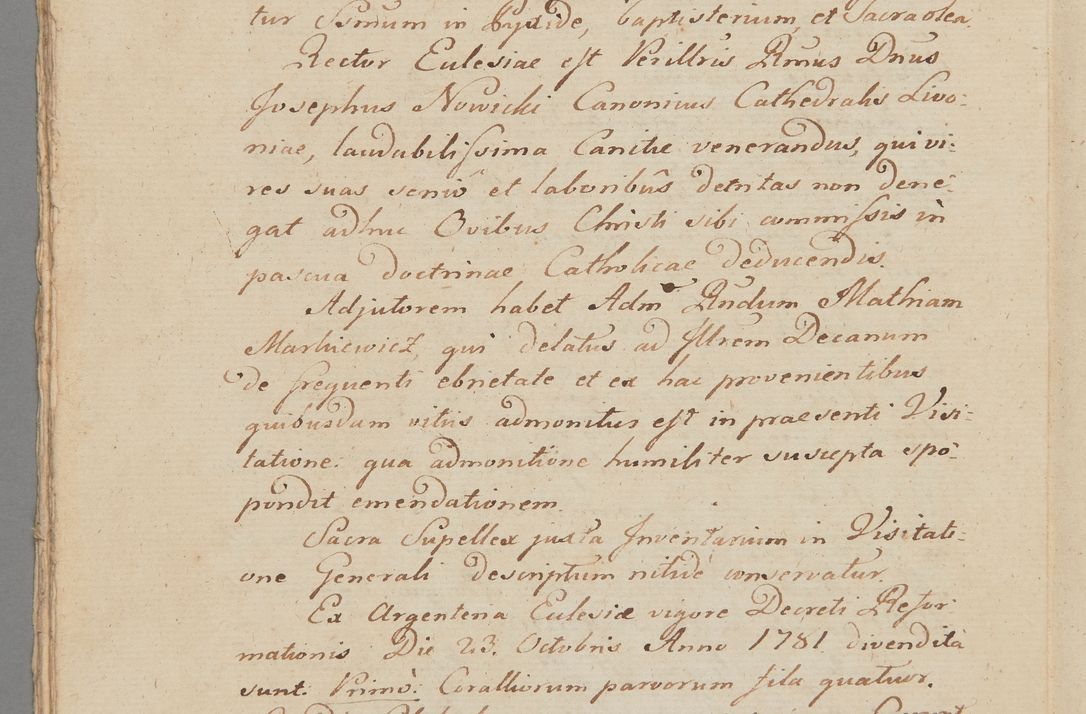 tur Ssmum in Pyxide, baptisterium, et Sacra olea.
Rector Eclesiae est Perillris Rmus Dnus
Josephus Nowicki Canonicus Cathedralis Livo:
niae, laudabilissima Canitie venerandus, qui vi:
res suas seniô et laboribûs detritas non dene:
gat adhuc Ovibus Christi sibi commissis in
pascua doctrinae Catholicae deducendis.
Adjutorem habet Adm Rndum Mathiam
Markiewicz, qui delatus ad Illrem Decanum
de frequenti ebrietate et ex hac provenientibus
quibusdam vitiis admonitus est in praesenti Visi:
tatione. qua admonitione humiliter suscepta spo:
pondit emendationem.
Sacra Supellex juxta Inventarium in Visitati:
one Generali descriptum nitidè conservatur.
Ex Argenteria Eclesiæ vigore Decreti Refor
mationis Die 23. Octobris Anno 1781 divendita
sunt. Primò. Coralliorum parvorum fila quatuor.